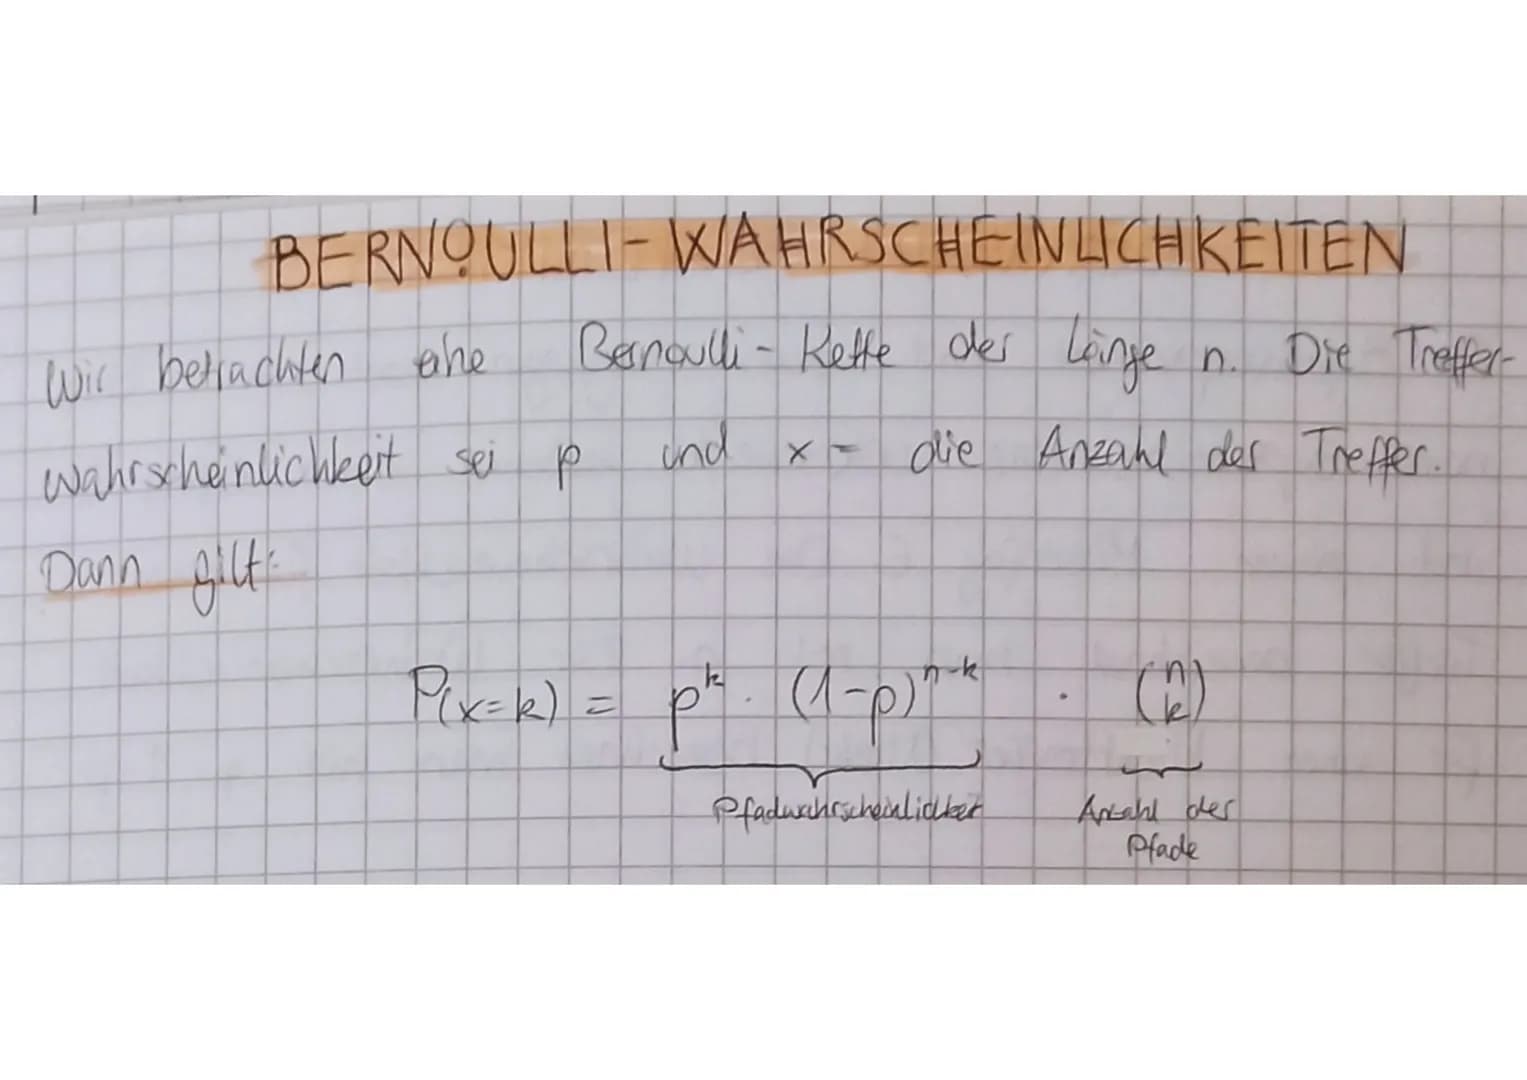 BERNOULLI-WAHRSCHEINLICHKEITEN
Wir betrachten eine Bernoulli-Kette der Länge n. Die Treffer-
wahrscheinlichkeit sei p und x = die Anzahl der Treffer.
Dann gilt:
P(x=k) = p^k · (1-p)^{n-k} · (n k)
Pfadwahrscheinlichkeit Anzahl der
Pfade